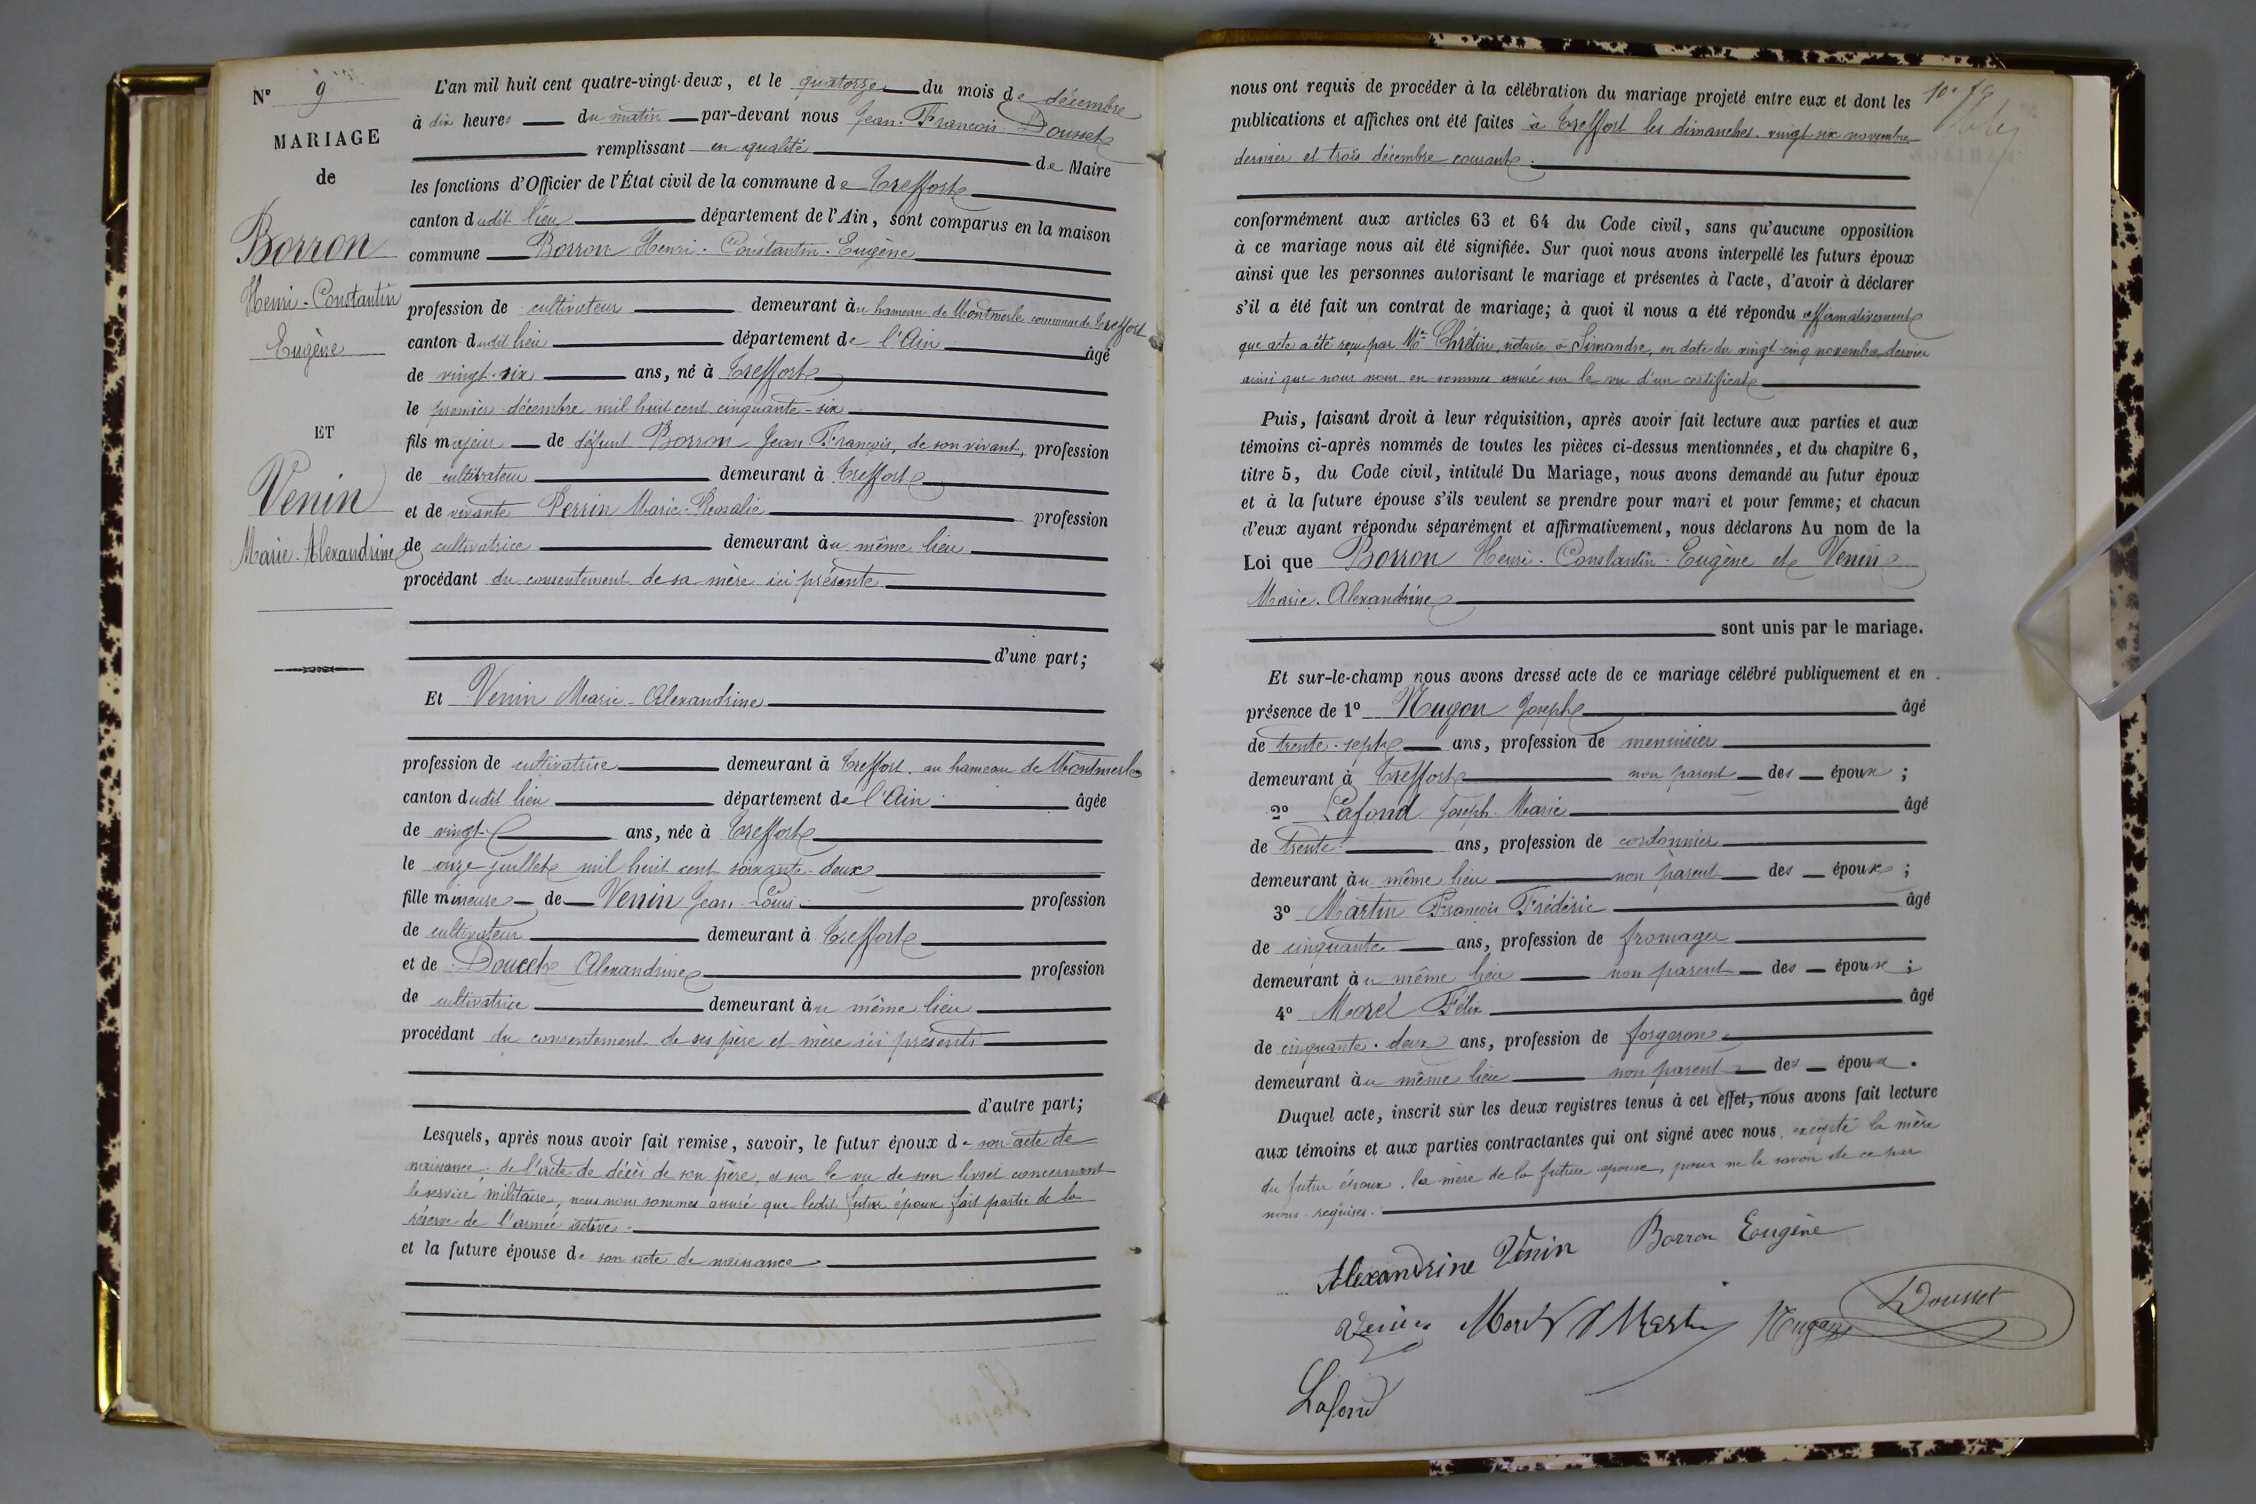 N° 9
MARIAGE
de
Borron
Henri-Constantin
Eugène
ET
Venin
Marie-Alexandrine
L'an mil huit cent quatre-vingt-deux, et le quatorze du mois de décembre
à dix heures du matin par-devant nous Jean-François Dousset
remplissant en qualité de Maire
les fonctions d'Officier de l'État civil de la commune de Treffort
canton dudit lieu département de l'Ain, sont comparus en la maison
commune Borron Henri-Constantin-Eugène
profession de cultivateur demeurant au hameau de Montmerle commune de Treffort
canton dudit lieu département de l'Ain âgé
de vingt-six ans, né à Treffort
le premier décembre mil huit cent cinquante-six
fils majeur de défunt Borron Jean François, de son vivant, profession
de cultivateur demeurant à Treffort
et de vivante Perrin Marie-Rosalie profession
de cultivatrice demeurant au même lieu
procédant du consentement de sa mère ici présente
d'une part;
Et Venin Marie-Alexandrine
profession de cultivatrice demeurant à Treffort. au hameau de Montmerle
canton dudit lieu département de l'Ain âgée
de vingt ans, née à Treffort
le onze juillet mil huit cent soixante-deux
fille mineure de Venin Jean-Louis profession
de cultivateur demeurant à Treffort
et de Doucet Alexandrine profession
de cultivatrice demeurant au même lieu
procédant du consentement de ses père et mère ici présents
d'autre part;
Lesquels, après nous avoir fait remise, savoir, le futur époux de son acte de
naissance. de l'acte de décès de son père, et sur le vu de son livret concernant
le service militaire, nous nous sommes assuré que ledit futur époux fait partie de la
réserve de l'armée active.
et la future épouse de son acte de naissance
nous ont requis de procéder à la célébration du mariage projeté entre eux et dont les
publications et affiches ont été faites à Treffort les dimanches vingt-six novembre
dernier et trois décembre courant.
conformément aux articles 63 et 64 du Code civil, sans qu'aucune opposition
à ce mariage nous ait été signifiée. Sur quoi nous avons interpellé les futurs époux
ainsi que les personnes autorisant le mariage et présentes à l'acte, d'avoir à déclarer
s'il a été fait un contrat de mariage; à quoi il nous a été répondu affirmativement
que acte a été reçu par Me Chrétin, notaire à Simandre, en date du vingt-cinq novembre dernier
ainsi que nous nous en sommes assuré sur le vu d'un certificat
Puis, faisant droit à leur réquisition, après avoir fait lecture aux parties et aux
témoins ci-après nommés de toutes les pièces ci-dessus mentionnées, et du chapitre 6,
titre 5, du Code civil, intitulé Du Mariage, nous avons demandé au futur époux
et à la future épouse s'ils veulent se prendre pour mari et pour femme; et chacun
d'eux ayant répondu séparément et affirmativement, nous déclarons Au nom de la
Loi que Borron Henri-Constantin-Eugène et Venin
Marie-Alexandrine
sont unis par le mariage.
Et sur-le-champ nous avons dressé acte de ce mariage célébré publiquement et en
présence de 1° Nugon Joseph âgé
de trente-sept ans, profession de menuisier
demeurant à Treffort non parent des époux;
2° Lafond Joseph-Marie âgé
de trente ans, profession de cordonnier
demeurant au même lieu non parent des époux;
3° Martin François Frédéric âgé
de cinquante ans, profession de fromager
demeurant au même lieu non parent des époux;
4° Morel Félix âgé
de cinquante-deux ans, profession de forgeron
demeurant au même lieu non parent des époux.
Duquel acte, inscrit sur les deux registres tenus à cet effet, nous avons fait lecture
aux témoins et aux parties contractantes qui ont signé avec nous, excepté la mère
du futur époux. la mère de la future épouse, pour ne le savoir de ce par
nous requises.
Alexandrine Venin Borron Eugène
Venin Morel Martin Nugon Dousset
Lafond